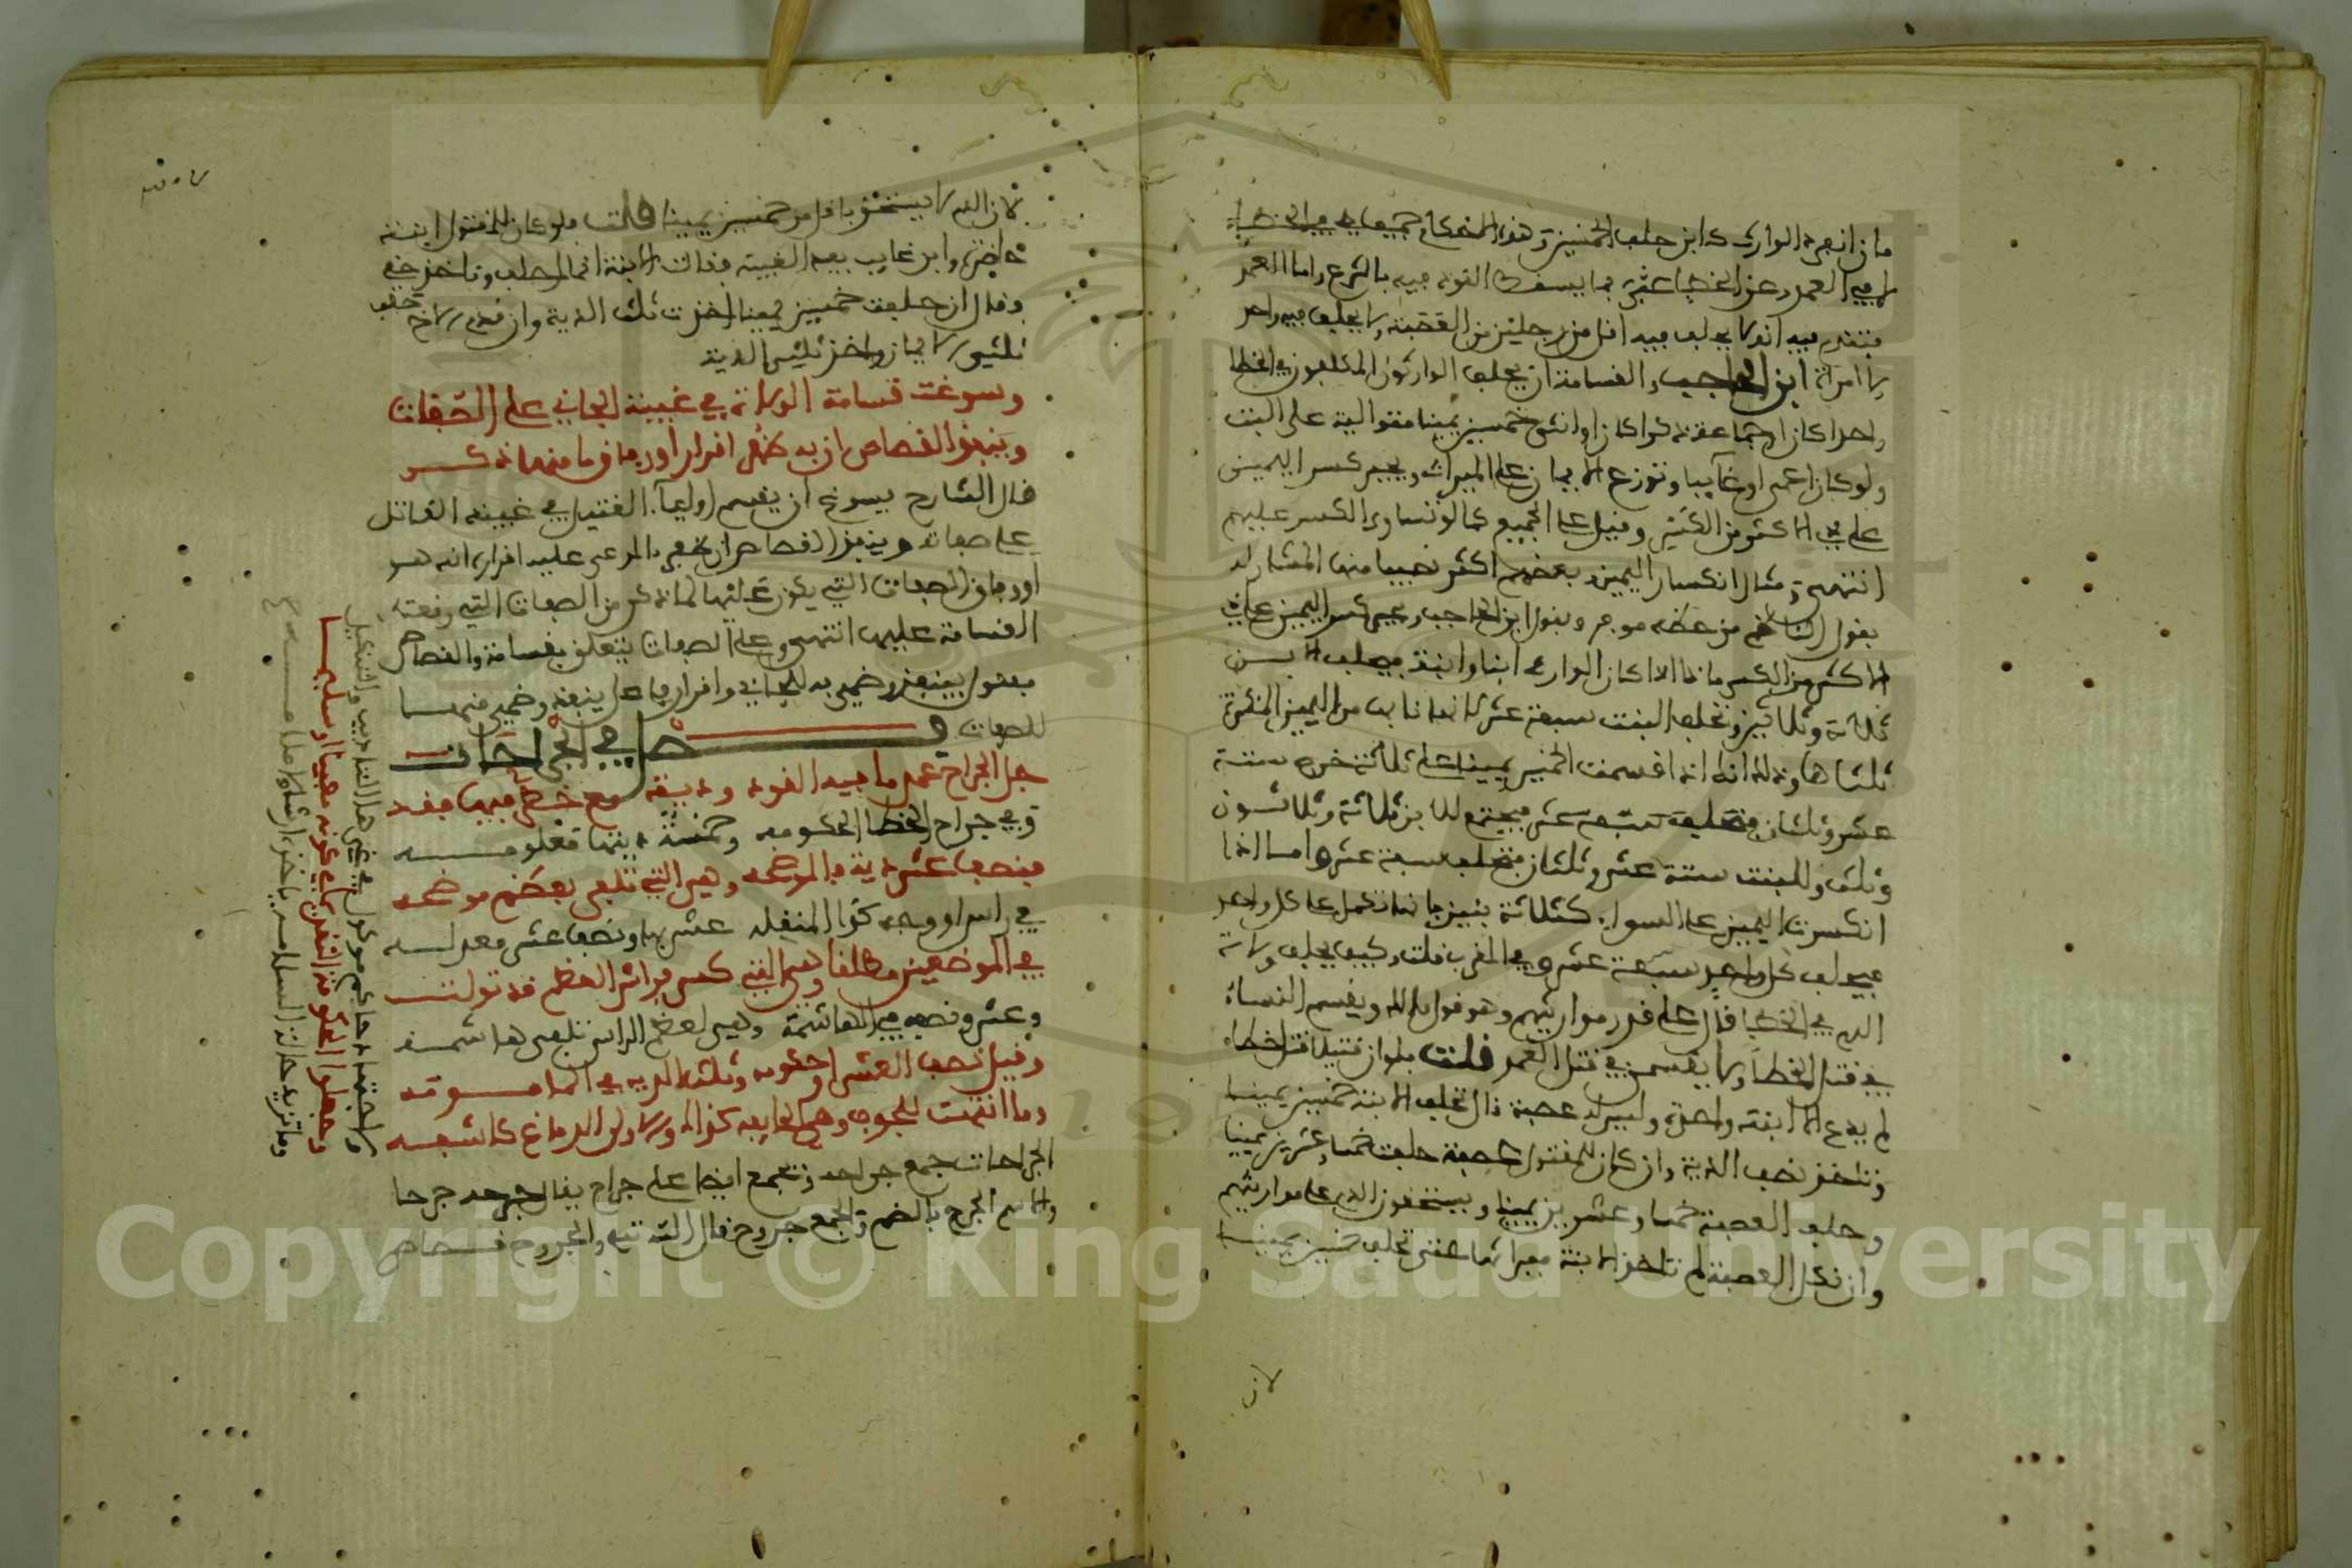 فان انفرد الوارث كابن حلف الخمسين وهذه الاحكام جميعها في الخطا
لا في العمد وعن الخطا عبر بما يسقط القود فيه بالشرع واما العمد
فتقدم فيه انه لا يحلف فيه اقل من رجلين من العصبة ولا يحلف فيه واحد
ولا امراة ابن الحاجب والقسامة ان يحلف الوارثون المكلفون في الخطا
واحدا كان او جماعة ذكرا كان او انثى خمسين يمينا متوالية على البت
ولو كان اعمى او غايبا وتوزع الايمان على الميراث ويجبر كسر اليمين
على ذي الاكثر من الكسر وقيل على الجميع كما لو تساوى الكسر عليهم
انتهى ومثال انكسار اليمين وبعضهم اكثر نصيبا منها المشار له
بقول الناظم من حظه موفر وبقول ابن الحاجب ويجبر كسر اليمين على ذي
الاكثر من الكسر ما اذا كان الوارث ابنا وابنة فيحلف الابن
ثلاثة وثلاثين وتحلف البنت سبعة عشر لانها نابها من اليمين المنكسرة
ثلثاها وذلك انك اذا قسمت الخمسين يمينا على ثلاثة خرج ستة
عشر وثلثان فيجتمع للابن ثلاثة وثلاثون
وثلث وللبنت ستة عشر وثلثان فتحلف سبعة عشر واما اذا
انكسرت اليمين على السواء كثلاثة بنين فانها تكمل على كل واحد
فيحلف كل واحد سبعة عشر وفي المقرب قلت وكيف يحلف ولاة
الدم في الخطا قال على قدر مواريثهم وهو قول مالك ويقسم النساء
في قتل الخطا ولا يقسمن في قتل العمد قلت فلو ان قتيلا قتل خطاء
لم يدع الا ابنة واحدة وليس له عصبة قال تحلف الابنة خمسين يمينا
وتاخذ نصف الدية وان كان للمقتول عصبة حلفت خمسا وعشرين يمينا
وحلف العصبة خمسا وعشرين يمينا ويستحقون الدية على مواريثهم
وان نكل العصبة لم تاخذ الابنة ميراثها حتى تحلف خمسين يمينا
لان
لان الدم لا يستحق باقل من خمسين يمينا قلت ولو كان للمقتول ابنة
حاضرة وابن غايب بعيد الغيبة فقالت الابنة انا احلف وتاخذ حقي
وقال ان حلفت خمسين يمينا اخذت ثلث الدية وان قدم الاخ حلف
ثلثي الايمان واخذ ثلثي الدية
وسوغت قسامة الولاة في غيبة الجاني على الصفات
وينفذ القصاص ان به ظفر اقرارا او وفاق ما منها ذكر
قال الشارح يسوغ ان يقسم اولياء القتيل في غيبة القاتل
على صفاته وينفذ القصاص ان ظفر بالمدعى عليه اقراره انه هو
او وفاق الصفات التي يكون عليها لما ذكر من الصفات التي وقعت
القسامة عليها انتهى وعلى الصفات يتعلق بقسامة والقصاص
مفعول بينفذ وضمير به للجاني واقرار فاعل ينفذ وضمير منها
للصفات فصل في الجراحات
جل الجراح عمدها فيه القود وديته مع خطئ فيها فقد
وفي جراح الخطا الحكومه وخمسة ديتها معلومه
فنصف عشر دية بالموضحه وهي التي تلفى بعظم موضحه
في راس او وجه كذا المنقله عشر بها ونصف عشر معدله
في الموضعين مطلقا وهي التي كسر فراش العظم قد تولت
وعشر ونصفه في الهاشمة وهي لعظم الراس تلفى هاشمه
وقيل نصف العشر او حكومه وثلث الديه في المامومه
وما انتهت للجوف وهي الجايفه كذا والاولى الدماغ كاشفه
الجراحات جمع جراحة وتجمع ايضا على جراح يقال جرحه جرحا
والاسم الجرح بالضم والجمع جروح قال الله تعالى والجروح قصاص
ولاجتهاد حاكم موكول في غير هذا التاديب والتنكيل
وجعلوا الحكومة التقويما في كونه معيبا او سليما
وما تزيد حالة السلامه ياخذه ارشا ولا ملامه